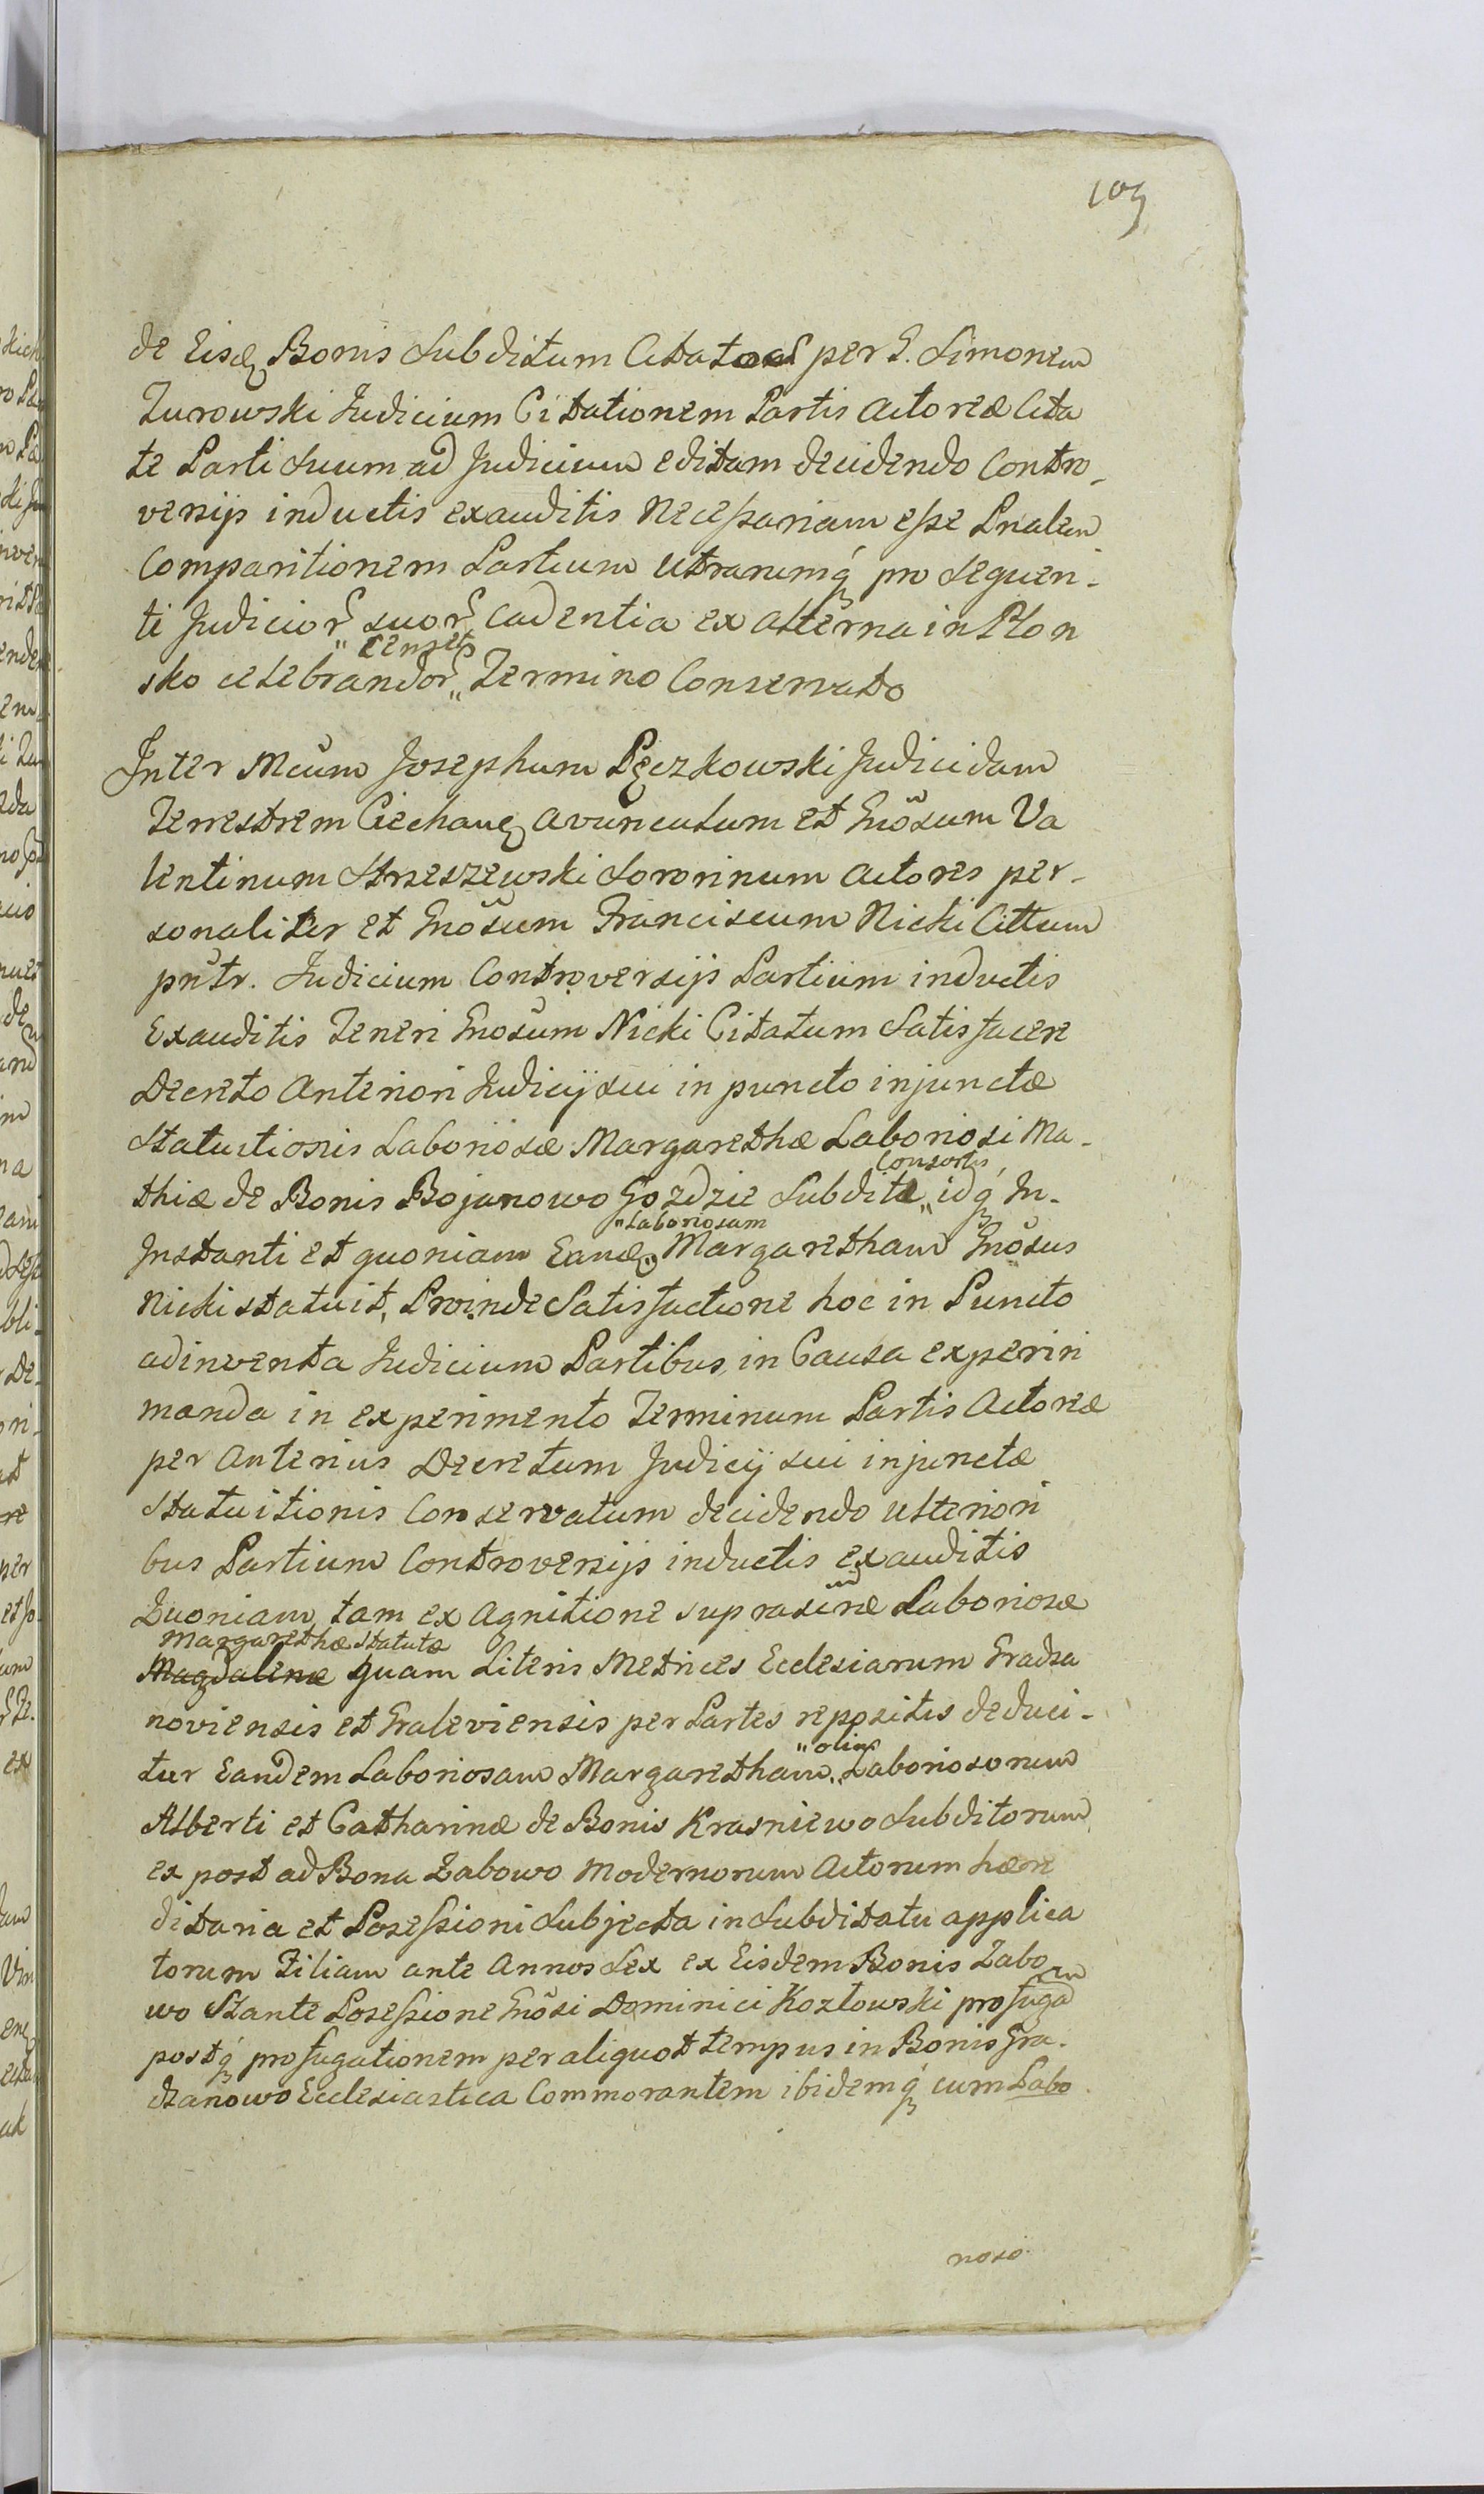 103
de Eisđ Bonis Subditum Citatos per G. Simonem
Zurowski Judicium Citationem Partis Actoreæ Cita
te Parti Suum ad Judicium editam decidendo Contro-
versijs inductis exauditis Necessariam esse Pnalem
Comparitionem Partium Utrarumq́ pro sequen-
ti Judicior suor Cadentia ex alterna in Plon
censet
sko celebrandor „ Termino Conservato
Inter Mcum Josephum Pęczkowski Judicidam
Terrestrem Ciechanę avunculum et Gnosum Va
lentinum Strzeszewski Sororinum Actores per-
sonaliter et Gnosum Franciscum Nicki Cittum
pntr. Judicium Controversijs Partium inductis
Exauditis Teneri Gnosum Nicki Citatum Satisfacere
Decreto Anteriori Judicij sui in puncto injunctæ
Statuitionis Laboriosæ Margarethæ Laboriosi Ma-
Consortis
thiæ de Bonis Bojanowo Gozdzie Subditæ „ idq́ In-
„Laboriosam
Instanti et quoniam Eamđ „ Margaretham Gnosus
Nicki statuit, Proinde Satisfactione hoc in Puncto
adinventa Judicium Partibus in Causa experiri
manda in experimento Terminum Partis Actoreæ
per Anterius Decretum Judicij sui injunctæ
Statuitionis Conservatum decidendo ulteriori
bus Partium Controversijs inductis exauditis
Quoniam tam ex Agnitione suprasinæ Laboriosæ
Margarethæ Statutæ
Magdalenæ quam Literis Metrices Ecclesiarum Gradza
noviensis et Graleviensis per Partes repositis deduci-
„olim
tur Eandem Laboriosam Margaretham „ Laboriosorum
Alberti et Catharinæ de Bonis Krasniewo Subditorum
ex post ad Bona Zabowo Modernorum Actorum hære
ditaria et Posessioni Subjecta in Subditatu applica
torum Filiam ante Annos Sex ex Eisdem Bonis Zabo
wo Stante Posessione Gnosi Dominici Kozłowski profugam
postq́ profugationem per aliquot tempus in Bonis Gra-
dzanowo Ecclesiastica Commorantem ibidemq́ cum Labo
rioso